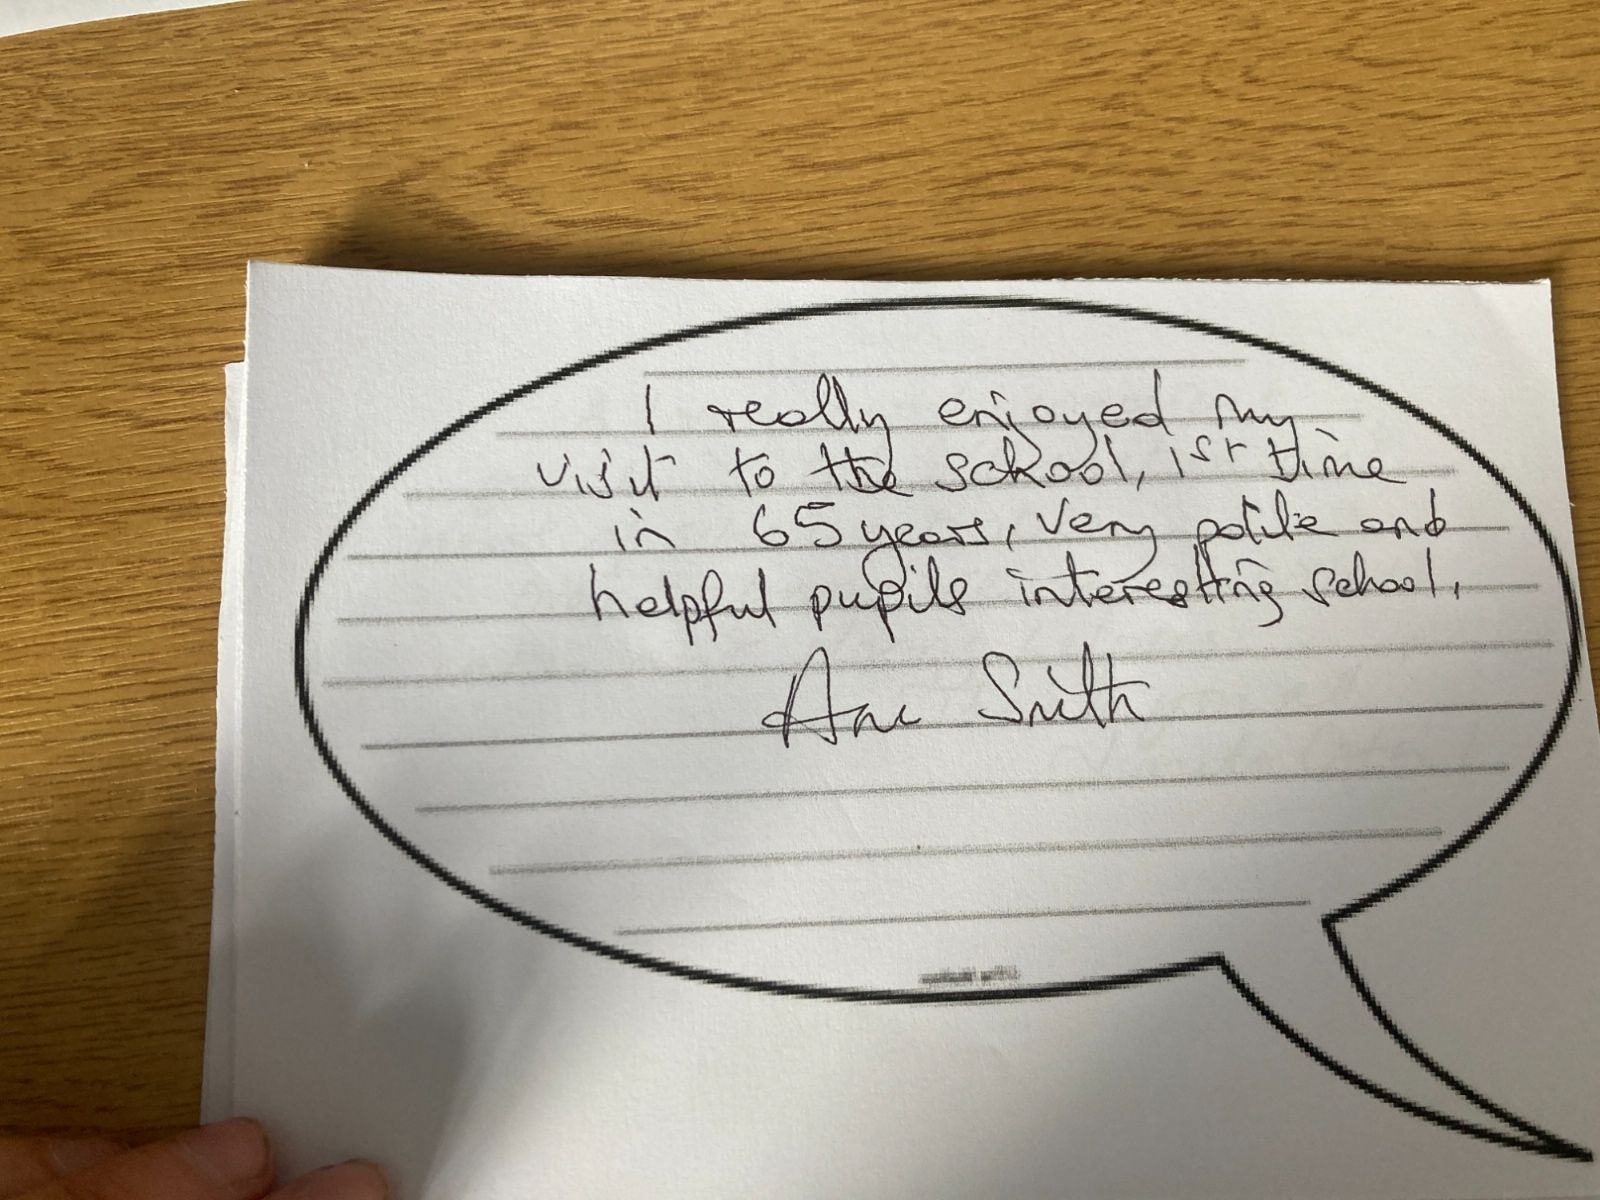 I really enjoyed my
visit to the school, 1st time
in 65 years, very polite and
helpful pupils interesting school.
Smith